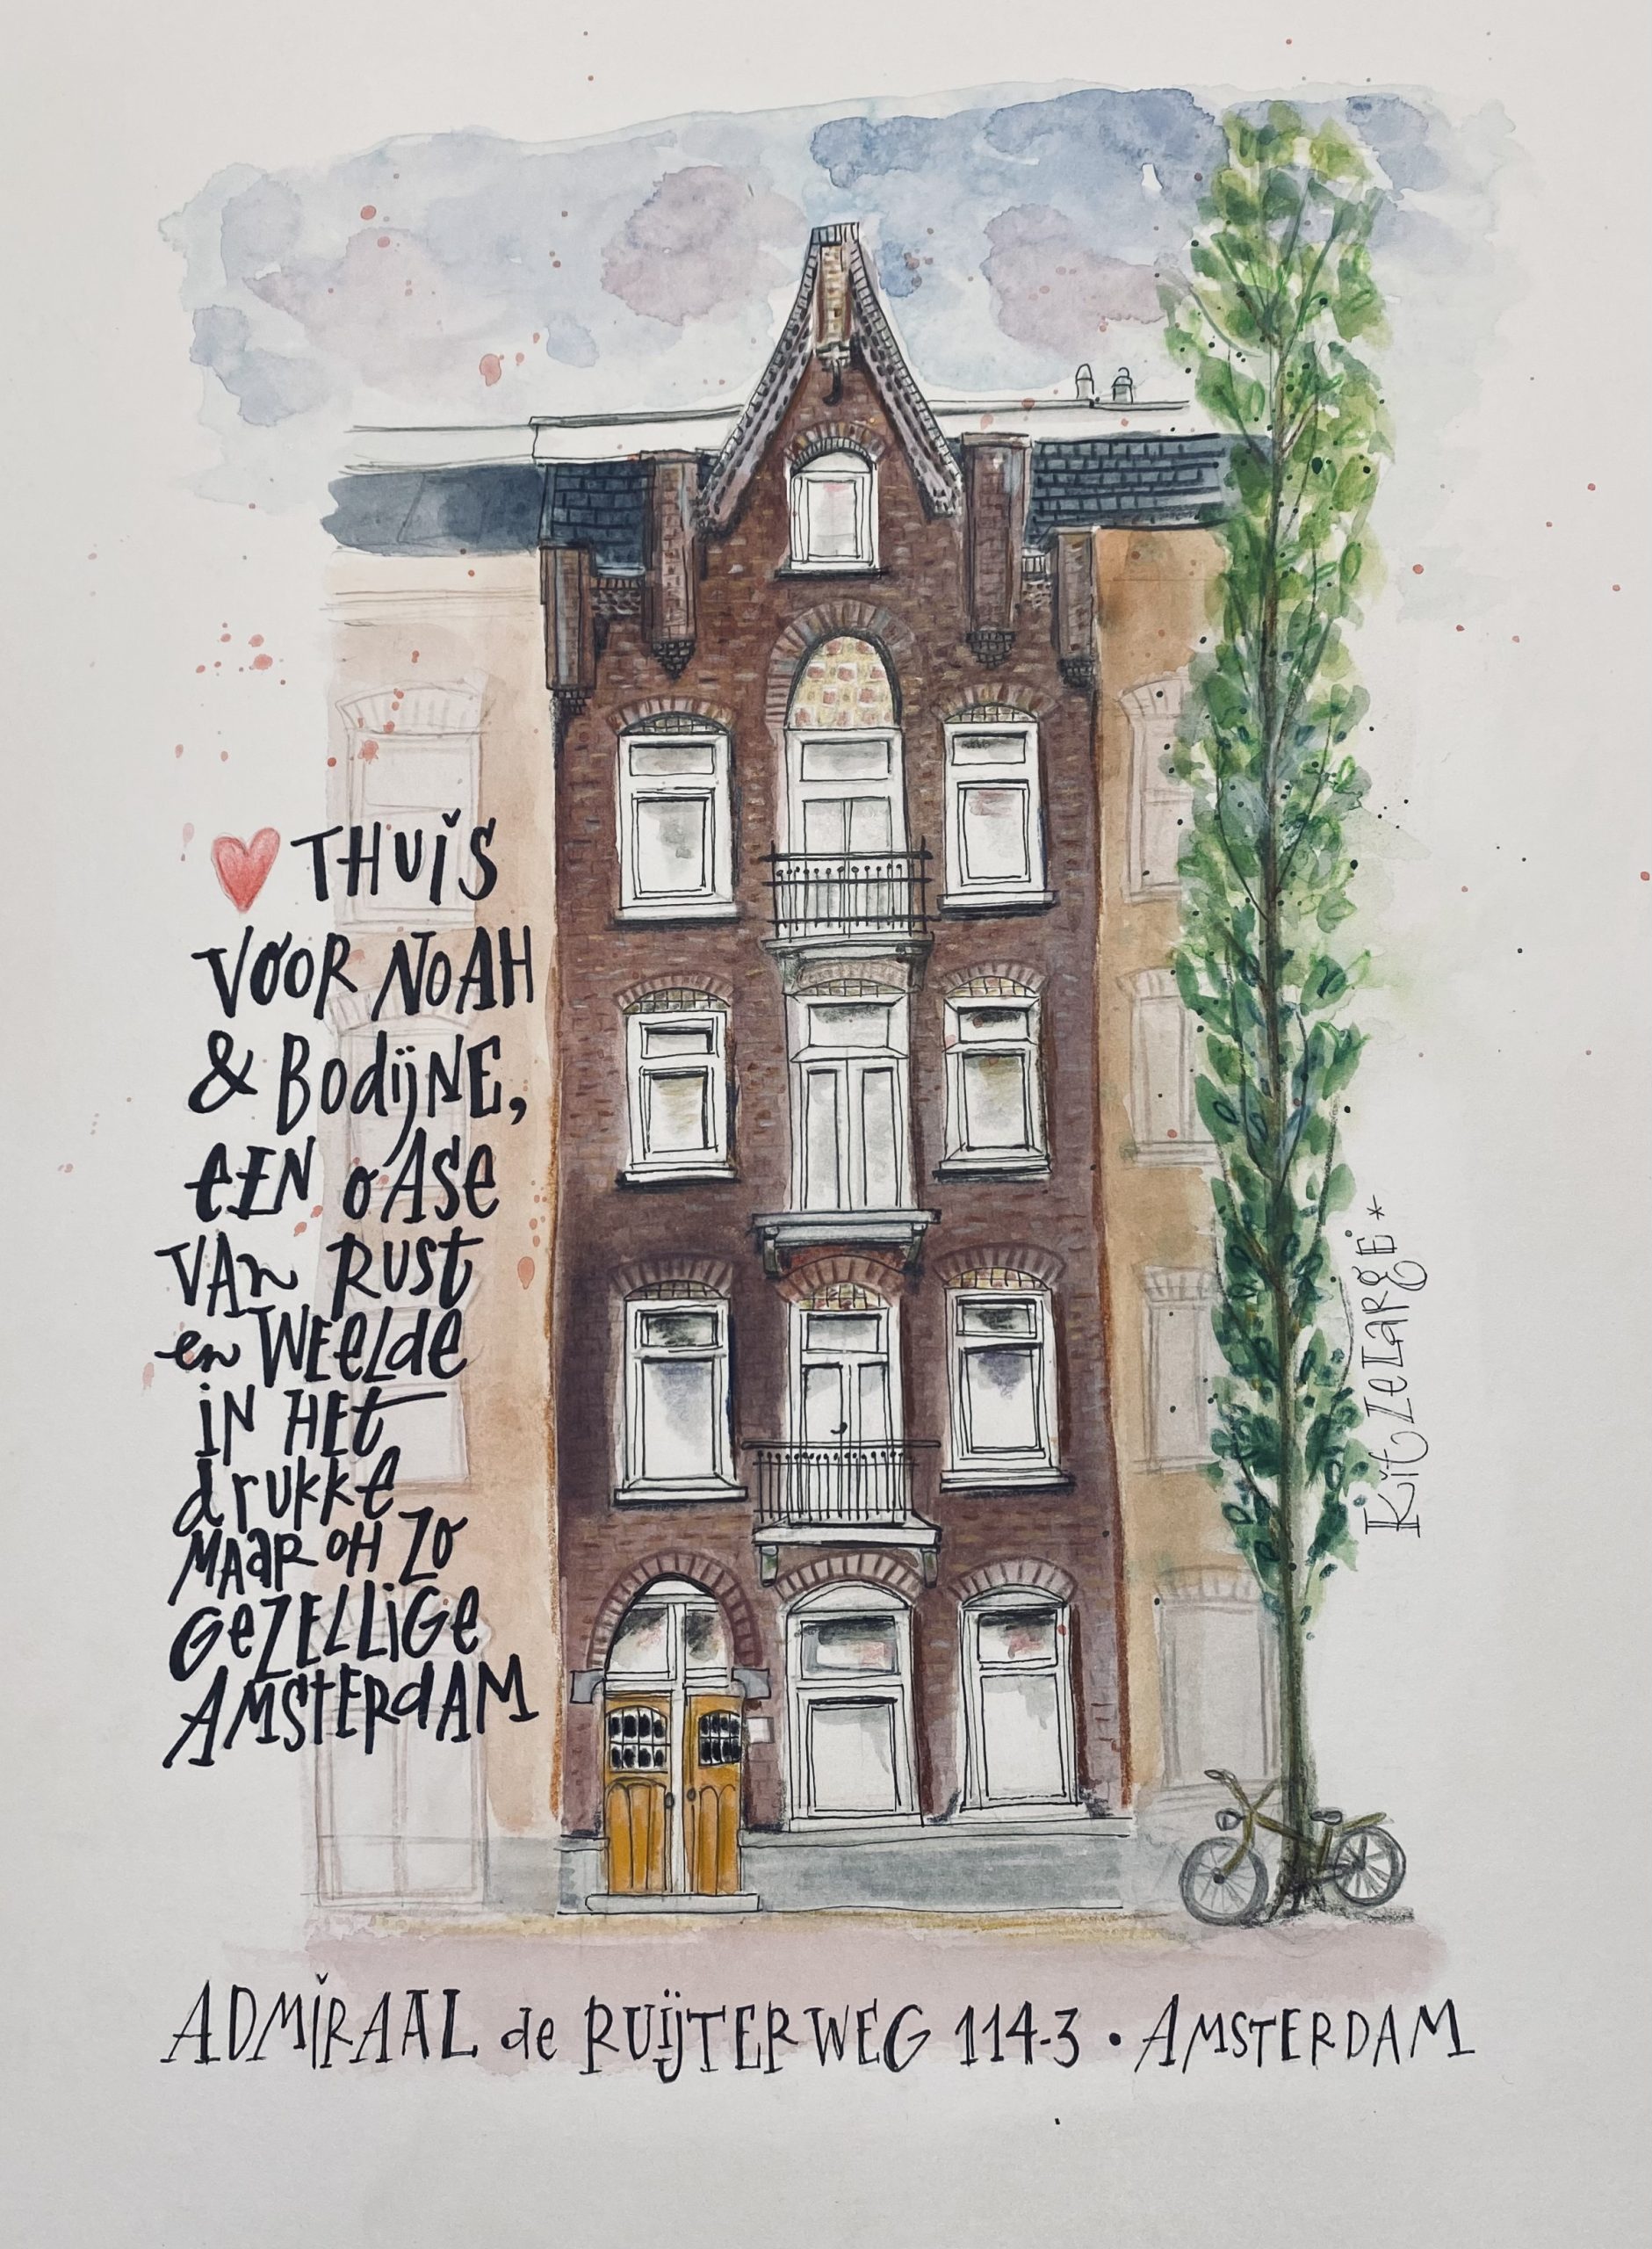 THUIS
VOOR NOAH
& BODIJNE,
EEN OASE
VAN RUST
en WEELDE
IN HET
drukke
MAAR OH ZO
GEZELLIGE
AMSTERDAM
KitzeLarge*
ADMIRAAL de RUIJTERWEG 114-3 • AMSTERDAM